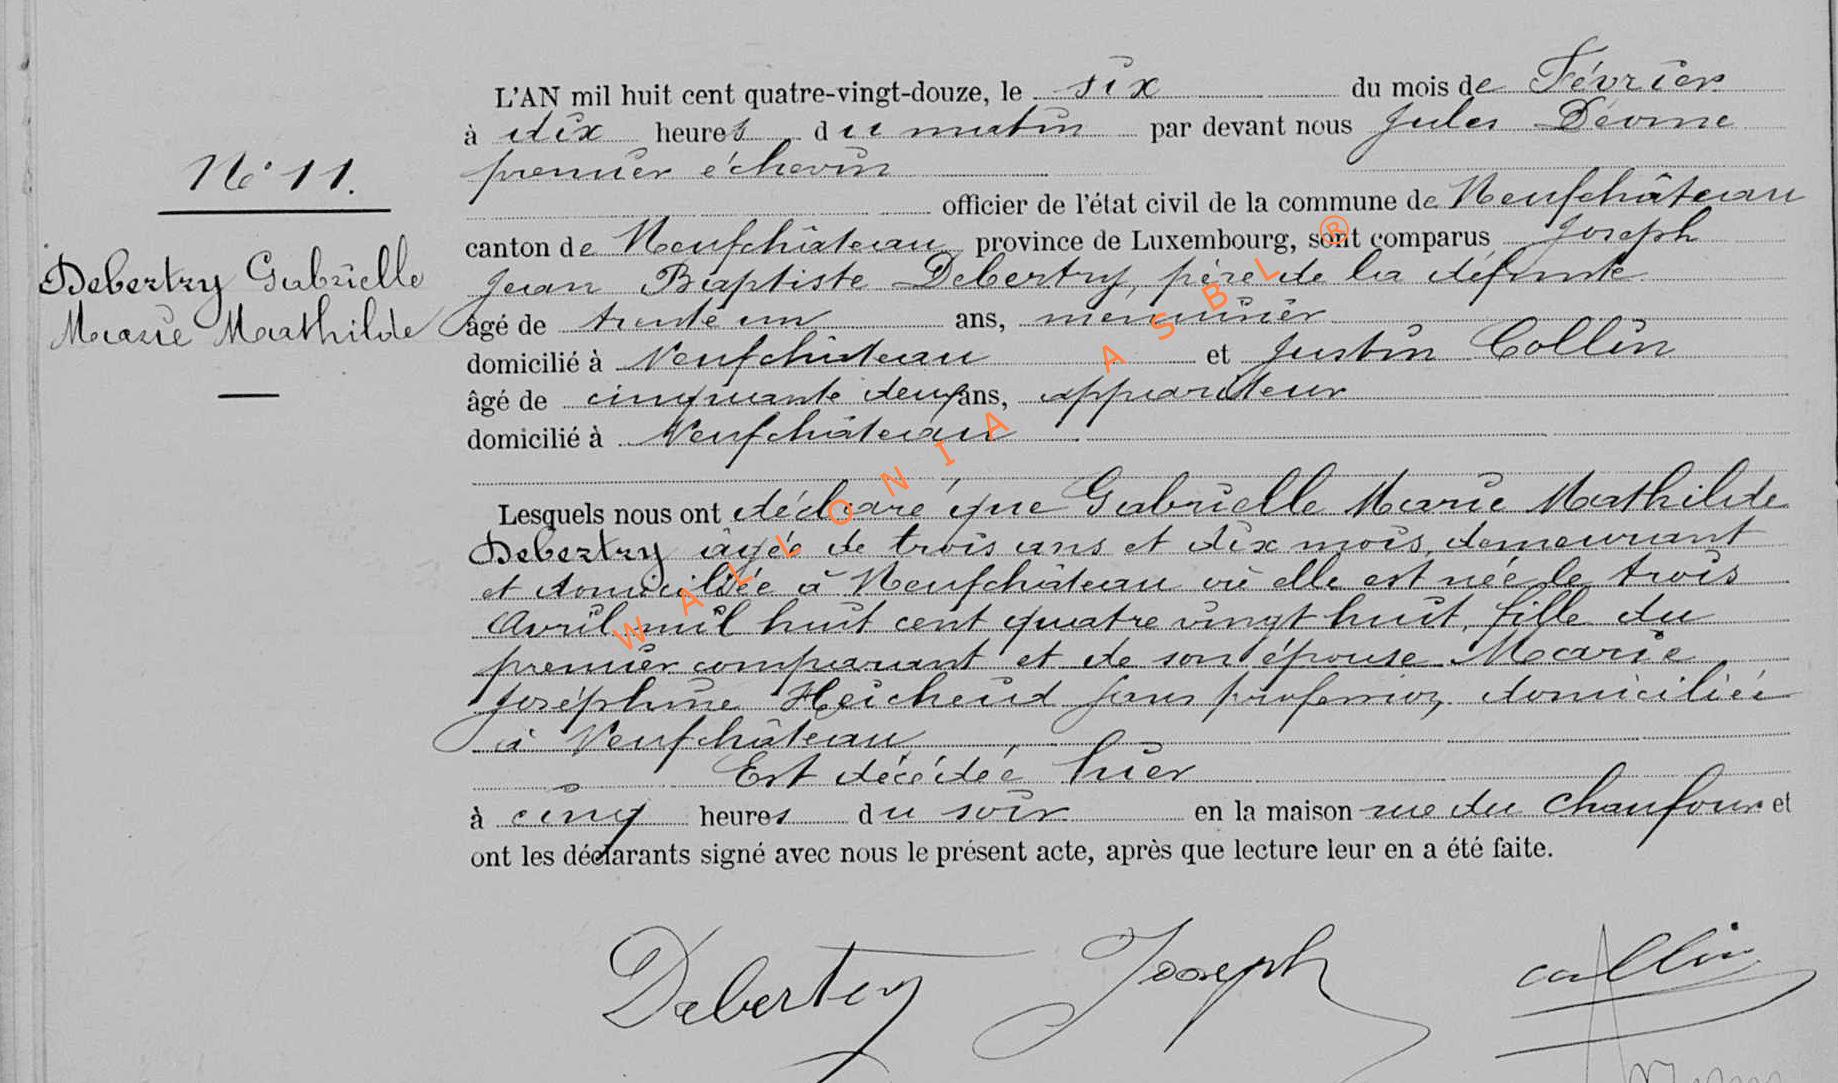 L'AN mil huit cent quatre-vingt-douze, le six du mois de Février
à dix heures du matin par devant nous Jules Déome
premier échevin
N° 11.
officier de l'état civil de la commune de Neufchâteau
canton de Neufchâteau province de Luxembourg, sont comparus Joseph
Debertry Gabrielle
Jean Baptiste Debertry, père de la défunte
Marie Mathilde
âgé de trente un ans, menuisier
domicilié à Neufchâteau et Justin Collin
âgé de cinquante deux ans, appariteur
domicilié à Neufchâteau
Lesquels nous ont déclaré que Gabrielle Marie Mathilde
Debertry âgée de trois ans et dix mois, demeurant
et domiciliée à Neufchâteau où elle est née le trois
Avril mil huit cent quatre vingt huit, fille du
premier comparant et de son épouse Marie
Joséphine Heicheid sans profession, domiciliée
à Neufchâteau
Est décédée hier
à cinq heures du soir en la maison rue du Chaufour et
ont les déclarants signé avec nous le présent acte, après que lecture leur en a été faite.
Debertry Joseph Collin
WALLONIA ASBL ®